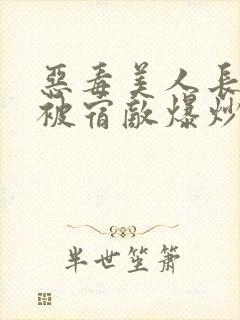 惡毒美人長
被宿敵爆炒
半世笙簫